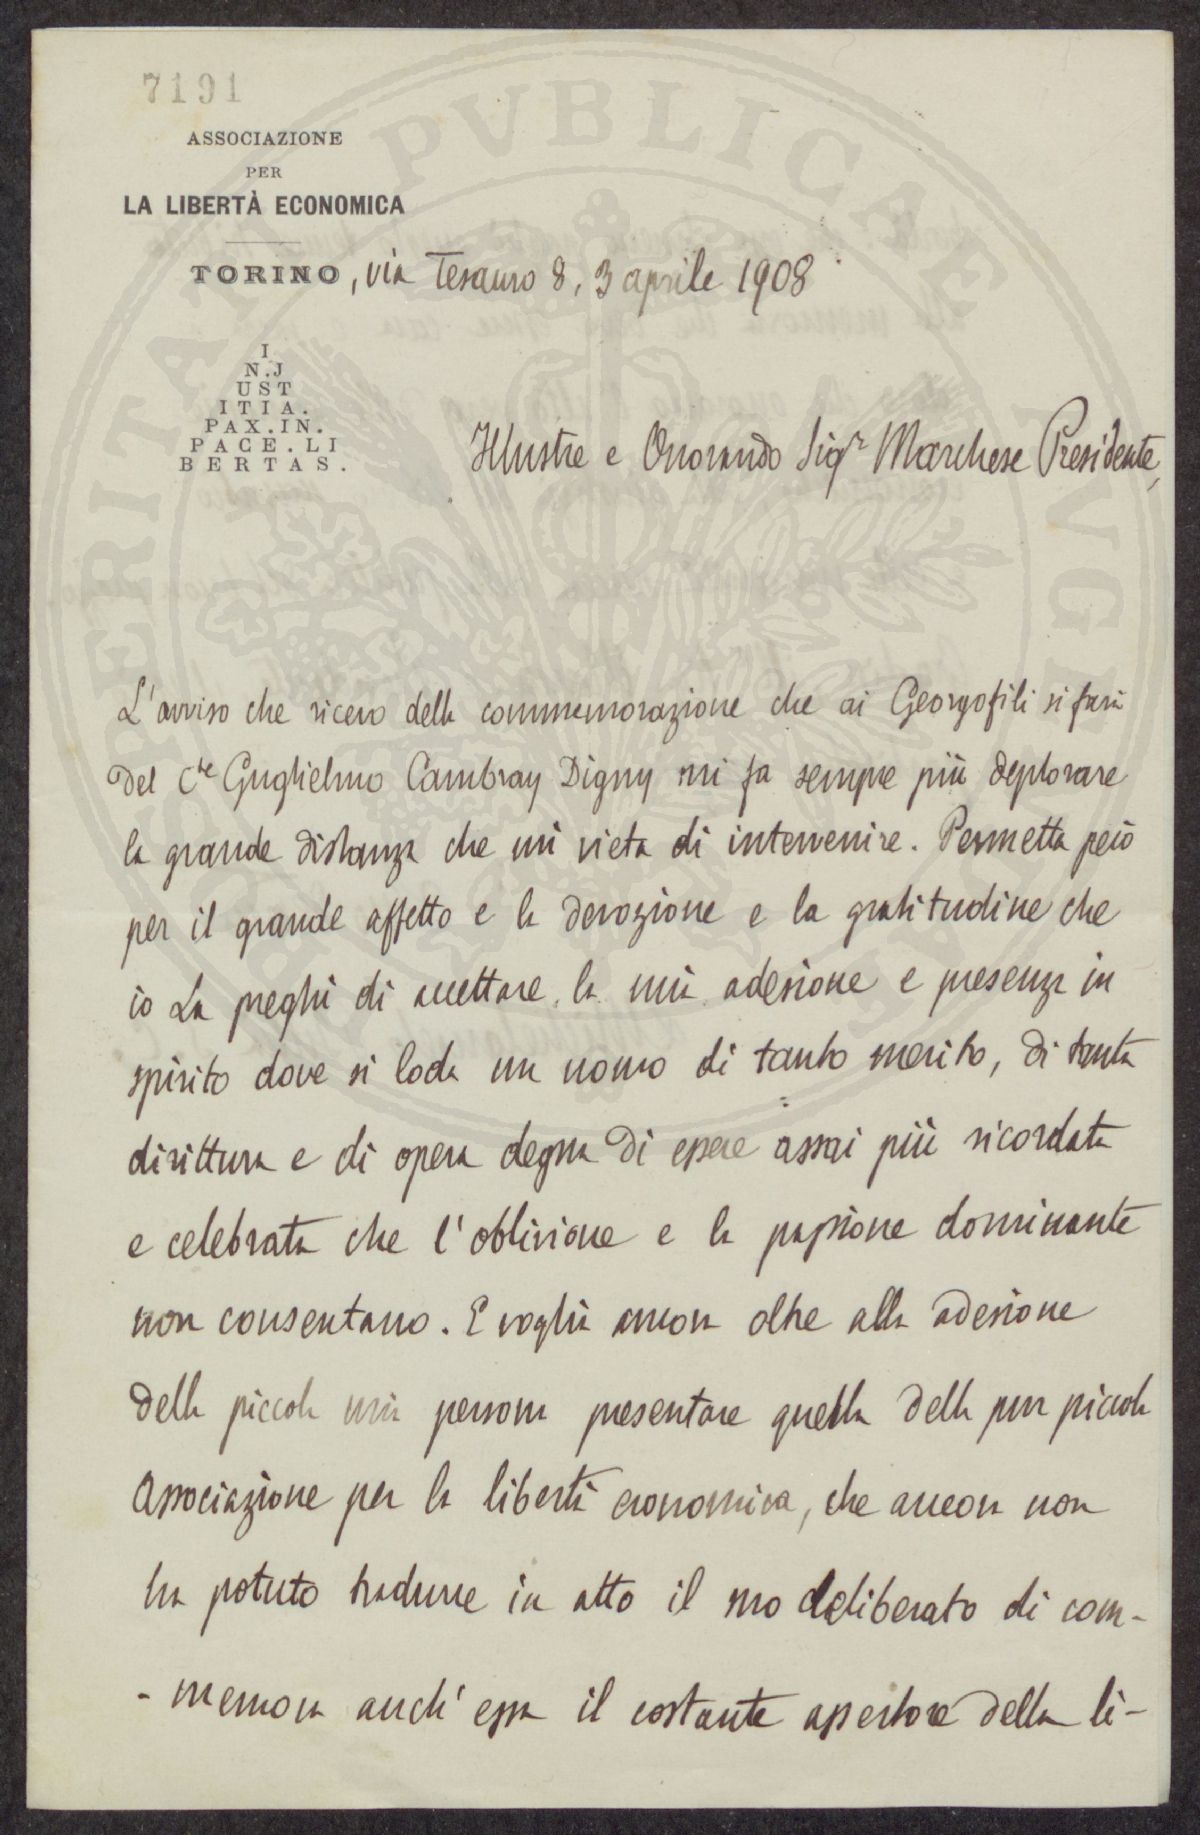 7191
ASSOCIAZIONE
PER
LA LIBERTÀ ECONOMICA
TORINO, via Tesauro 8, 3 aprile 1908
I
N.J
UST
ITIA.
PAX.IN.
PACE.LI
BERTAS.
Illustre e Onorando Sigr Marchese Presidente,
L'avviso che ricevo della commemorazione che ai Georgofili si farà
del Cte Guglielmo Cambray Digny mi fa sempre più deplorare
la grande distanza che mi vieta di intervenire. Permetta però
per il grande affetto e la devozione e la gratitudine che
io La preghi di accettare la mia adesione e presenza in
spirito dove si loda un uomo di tanto merito, di tanta
dirittura e di opera degna di essere assai più ricordata
e celebrata che l'oblivione e la passione dominante
non consentano. E voglia ancora oltre alla adesione
della piccola mia persona presentare quella della pur piccola
Associazione per la libertà economica, che ancora non
ha potuto tradurre in atto il suo deliberato di com-
-memorar anch'essa il costante assertore della li-
PVBLICAE